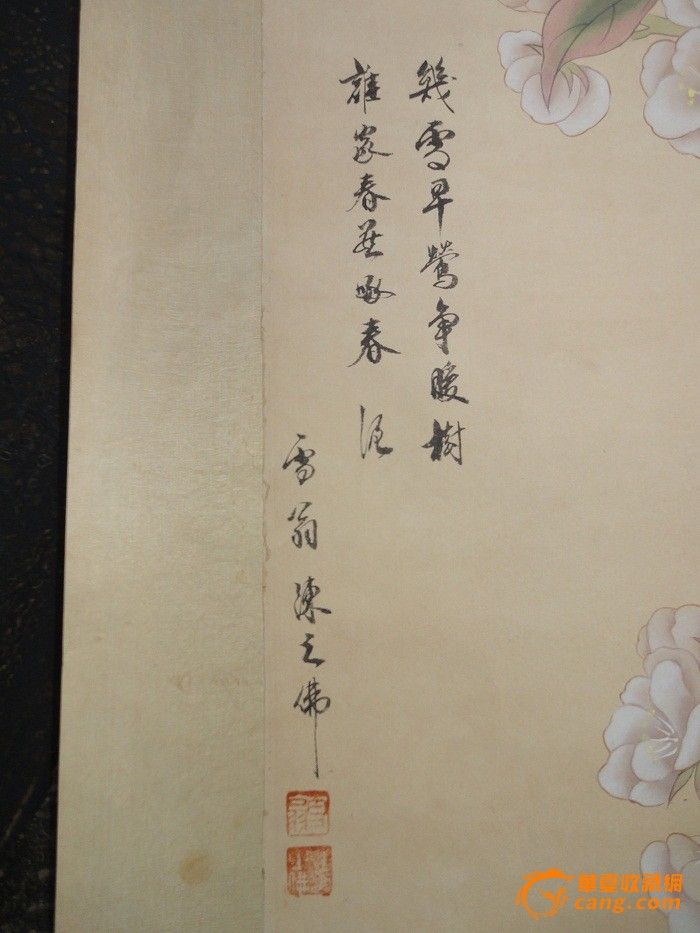 幾雪早鶯争暖樹
誰家春燕啄春泥
雪翁陳之佛
華夏收藏網
cang.com